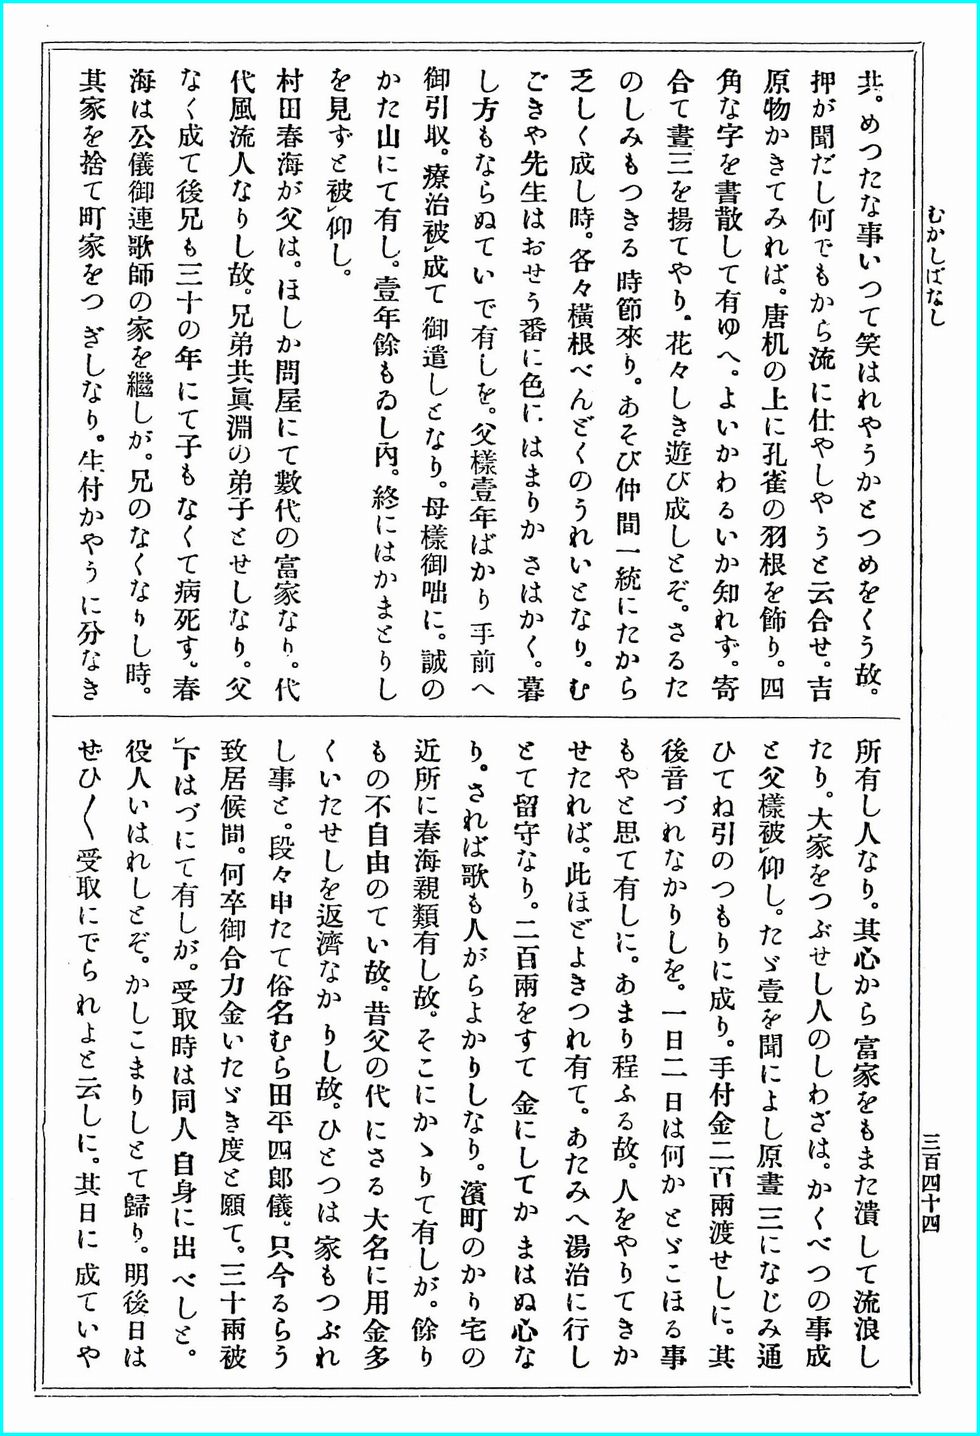 むかしばなし
三百四十四
共。めつたな事いつて笑はれやうかとつめをくう故。
押が聞だし何でもから流に仕やしやうと云合せ。吉
原物かきてみれば。唐机の上に孔雀の羽根を飾り。四
角な字を書散して有ゆへ。よいかわるいか知れず。寄
合て晝三を揚てやり。花々しき遊び成しとぞ。さるた
のしみもつきる時節來り。あそび仲間一統にたから
乏しく成し時。各々橫根べんどくのうれいとなり。む
ごきや先生はおせう番に色にはまりかさはかく。暮
し方もならぬていで有しを。父樣壹年ばかり手前へ
御引取。療治被㆑成て御遣しとなり。母樣御咄に。誠の
かた山にて有し。壹年餘もゐし內。終にはかまとりし
を見ずと被㆑仰し。
村田春海が父は。ほしか問屋にて數代の富家なり。代
代風流人なりし故。兄弟共眞淵の弟子とせしなり。父
なく成て後兄も三十の年にて子もなくて病死す。春
海は公儀御連歌師の家を繼しが。兄のなくなりし時。
其家を捨て町家をつぎしなり。生付かやうに分なき
所有し人なり。其心から富家をもまた潰して流浪し
たり。大家をつぶせし人のしわざは。かくべつの事成
と父樣被㆑仰し。たゞ壹を聞によし原晝三になじみ通
ひてね引のつもりに成り。手付金二百兩渡せしに。其
後音づれなかりしを。一日二日は何かとゞこほる事
もやと思て有しに。あまり程ふる故。人をやりてきか
せたれば。此ほどよきつれ有て。あたみへ湯治に行し
とて留守なり。二百兩をすて金にしてかまはぬ心な
り。されば歌も人がらよかりしなり。濱町のかり宅の
近所に春海親類有し故。そこにかゝりて有しが。餘り
もの不自由のてい故。昔父の代にさる大名に用金多
くいたせしを返濟なかりし故。ひとつは家もつぶれ
し事と。段々申たて俗名むら田平四郞儀。只今るらう
致居候間。何卒御合力金いたゞき度と願て。三十兩被
㆑下はづにて有しが。受取時は同人自身に出べしと。
役人いはれしとぞ。かしこまりしとて歸り。明後日は
ぜひ〱受取にでられよと云しに。其日に成ていや